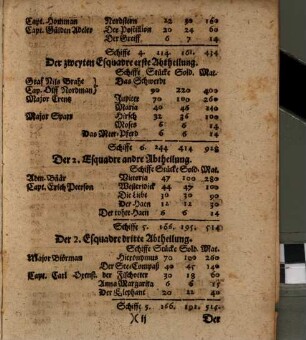 Capt. Homman Nordstern 22 50 160
Capt. Gülden Adeler Der Posillion 20 24 60
Der Greiff 6 7 14
Schiffe 4. 114. 161. 434
Der zweyten Esquadre erste Abtheilung.
Schiffe Stücke Sold. Mat.
Graf Nils Brahe Das Schwerdt
Cap. Olff Nordman 90 220 400
Major Crentz Jupiter 70 100 260
Maria 40 48 140
Major Sparr Hirsch 32 36 100
Moses 6 6 14
Das Meer-Pferd 6 6 14
Schiffe 6. 244 414 928
Der 2. Esquadre andre Abtheilung.
Schiffe Stücke Sold. Mat.
Adm. Bäär Victoria 47 100 280
Capt. Erich Peerson Westerwick 44 47 100
Die Liebe 30 30 90
Der Haen 11 12 30
Der rohte Haen 6 6 14
Schiffe 5. 166. 195. 514
Der 2. Esquadre dritte Abtheilung.
Schiffe Stücke Sold. Mat.
Major Biörman Hieronymus 70 100 260
Der See-Compaß 40 45 140
Capt. Carl der Falckener 30 18 60
Anna Margarita 6 6 15
Der Elephant 20 22 40
Schiffe 5. 166. 191. 515.
X ij Der